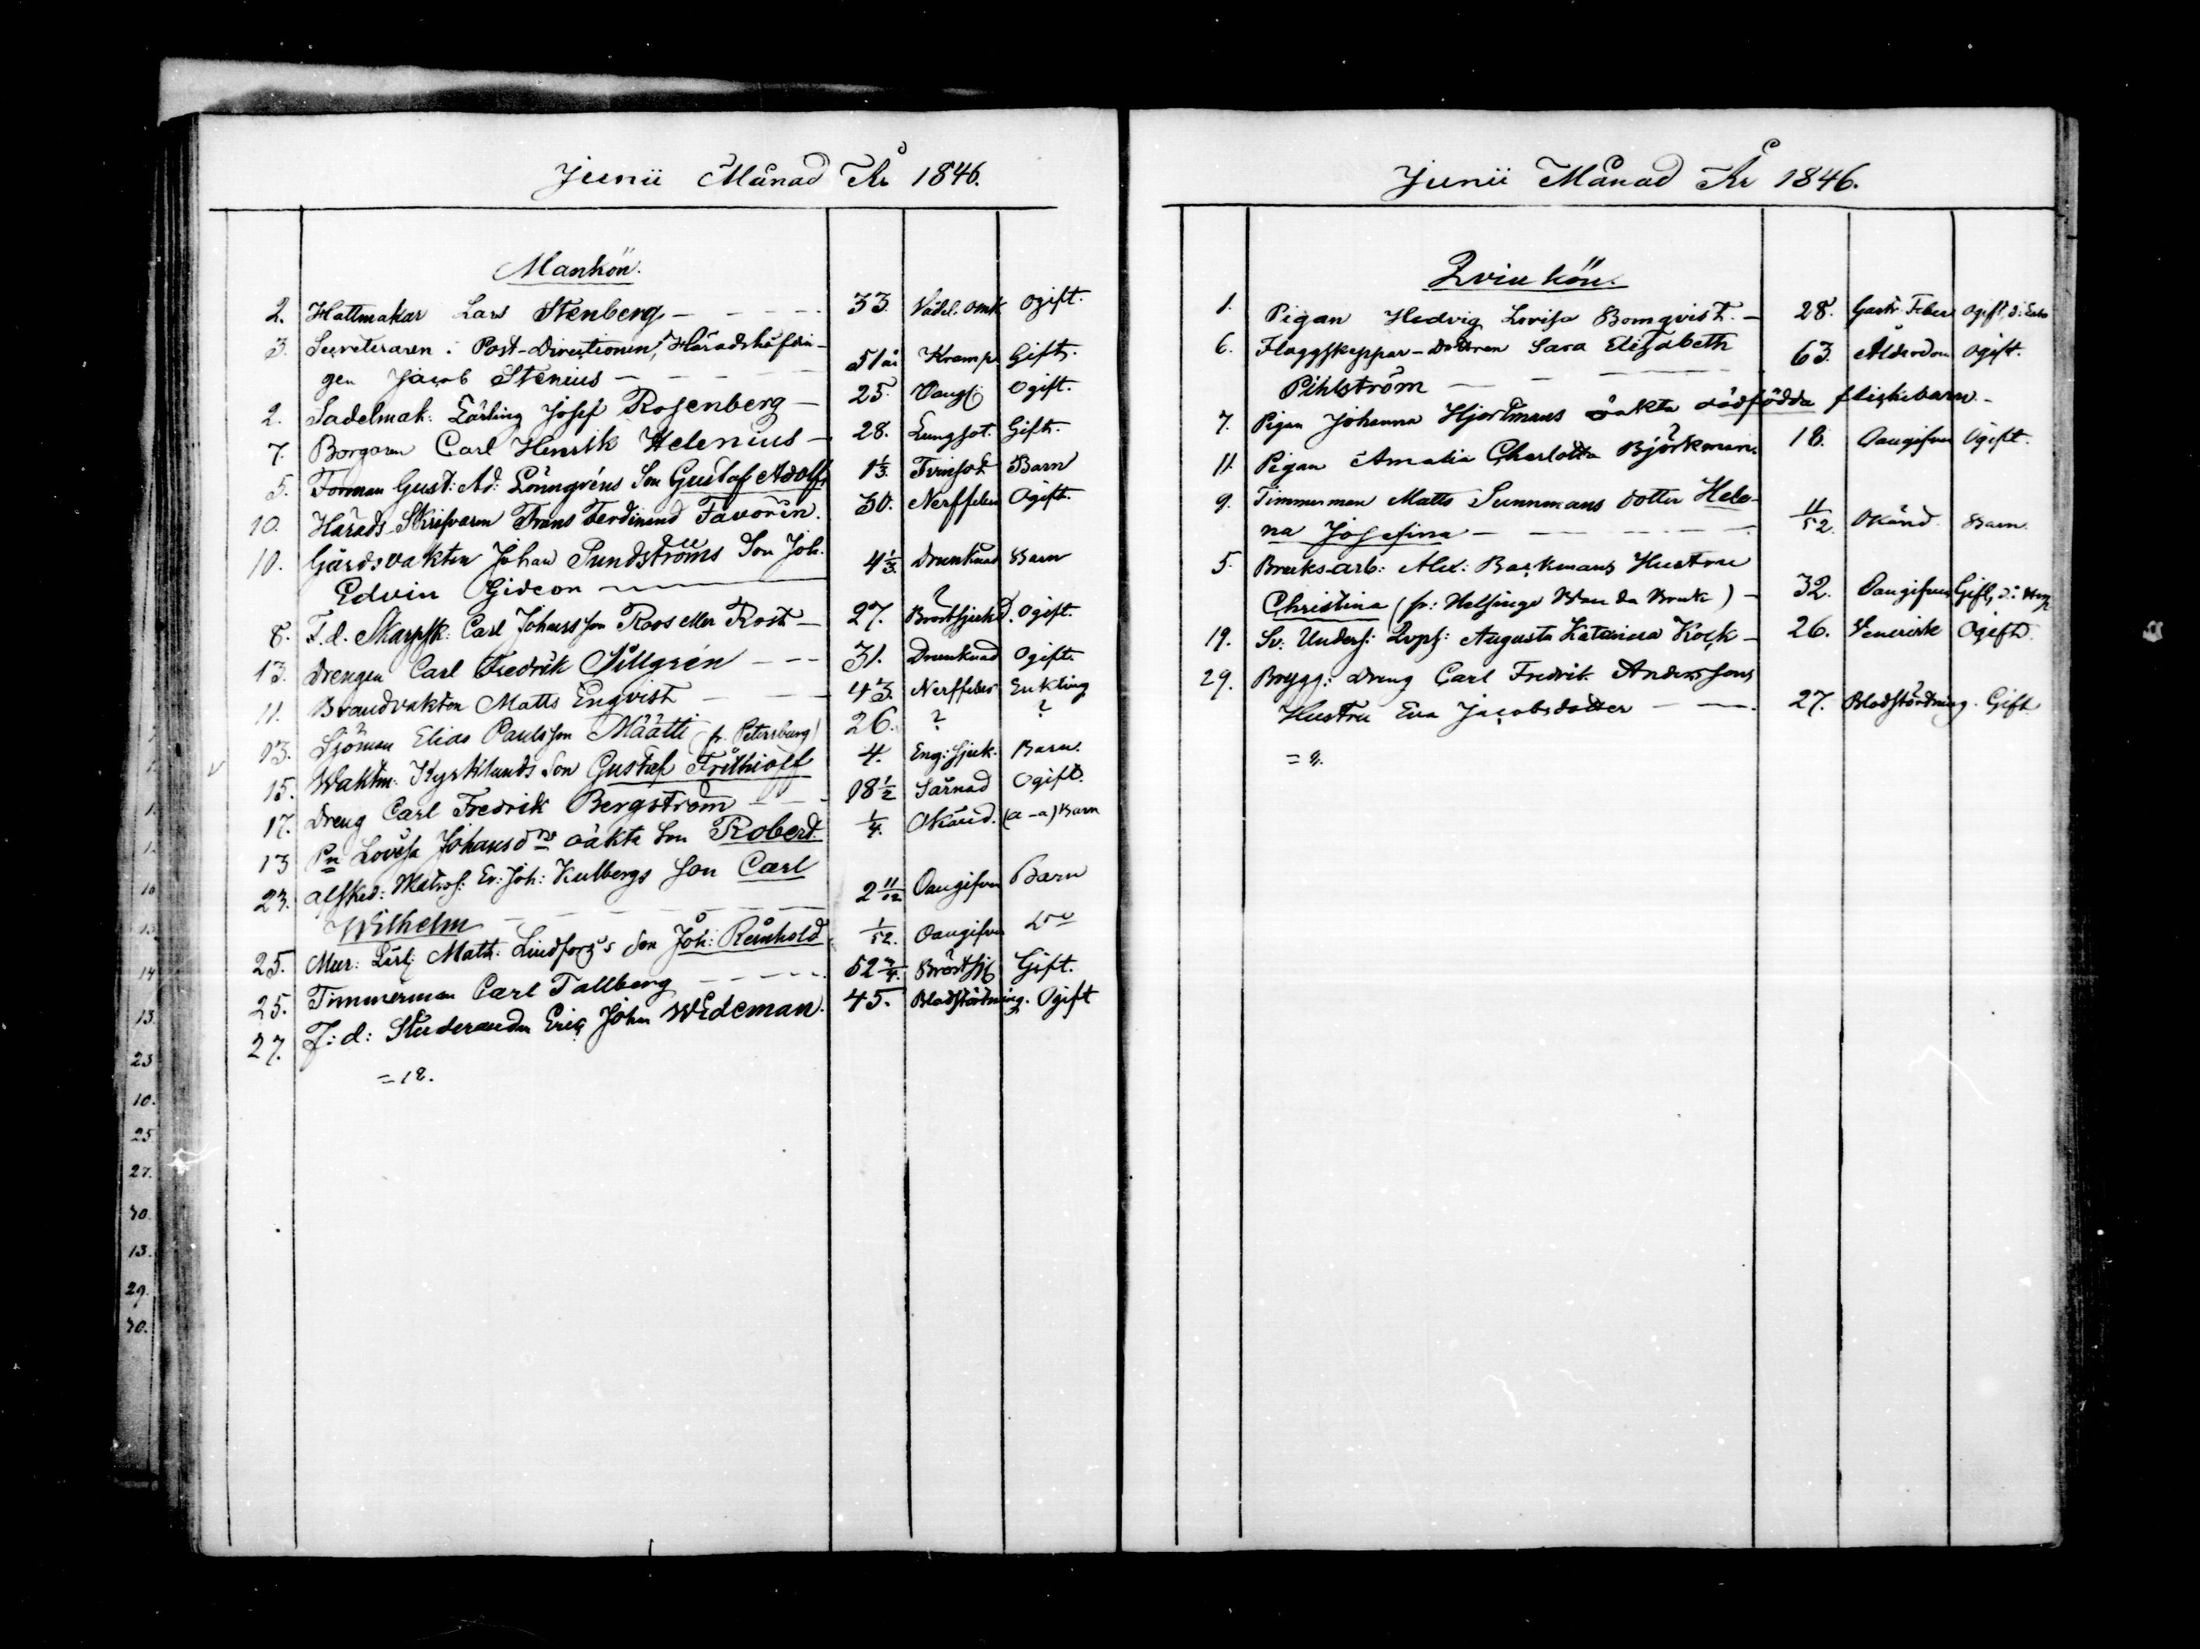 Junii Månad År 1846.
Mankön.
2. Hattmakar Lars Stenberg - - - - 33. Vådel. omk ogift.
3. Secreteraren i Post-Directionen, Häradshöfdin-
gen Jacob Stenius - - - - 51 år Kramp. Gift.
2. Sadelmak: Lärling Josef Rosenberg - 25. Oangf. Ogift.
7. Borgaren Carl Henrik Helenius - 28. Lungsot. Gift.
5. Forman Gust: Ad: Lönngréns Son Gustaf Adolf 1 1/3. Tvinsot Barn
10. Härads-Skrifvaren Frans Ferdinand Favorin. 30. Nerffeber Ogift.
10. Gårdsvakten Johan Sundströms Son Joh.
Edvin Gideon 4 1/3. Drunknad Barn
8. F. d. Skarpsk: Carl Johansson Roos eller Rost - 27. Bröstsjukd. ogift.
13. Drengen Carl Fredrik Sillgrén - - - 31. Drunknad Ogift.
11. Brandvakten Matts Enqvist - - 43. Nerffeber Enkling
13. Sjöman Elias Paulsson Määtti (fr. Petersburg) 26. ? ?
15. Waktm: Kyrklunds Son Gustaf Frithioff 4. Eng: sjuk. Barn.
17. Dreng Carl Fredrik Bergström - - - 18 1/2 Sårnad Ogift.
13 Pn Lovisa Johansd:rs oäkta Son Robert. 1/4. Okänd. (a-a) Barn
23. Afsked: Matros: Er: Joh: Kulbergs Son Carl
Wilhelm - - - - 2 11/12 Oangifven Barn
25. Mur: Lärl: Math: Lindfors's Son Joh: Reinhold 1/52. Oangifven D:o
25. Timmerman Carl Tallberg - - - - 52 3/4. Bröstsj: Gift.
27. F: d: Studeranden Eric John Wideman. 45. Blodstörtning. Ogift
= 18.
Junii Månad År 1846.
Qvinkön.
1. Pigan Hedvig Lovisa Bomqvist. - 28. Gastr. Feber Ogift.
6. Flaggskeppar-Dottren Sara Elisabeth
Pihlström - - - - 63. Ålderdom Ogift.
7. Pigan Johanna Hjortmans oäkta dödfödda flickebarn. -
11. Pigan Amalia Charlotta Björkman 18. Oangifven Ogift.
9. Timmerman Matts Sunnmans dotter Hele-
na Josefina - - - - 11/52. Okänd. Barn.
5. Bruksarb: Alex: Backmans Hustru
Christina (fr: Helsinge Wanda Bruk) - 32. Oangifven Gift,
19. Sv: Underf: Qvpf: Augusta Katarina Kock - 26. Venerisk Ogift.
29. Brygg: dreng Carl Fredrik Anderssons
Hustru Eva Jacobsdotter - - - 27. Blodstörtning. Gift
= 8.